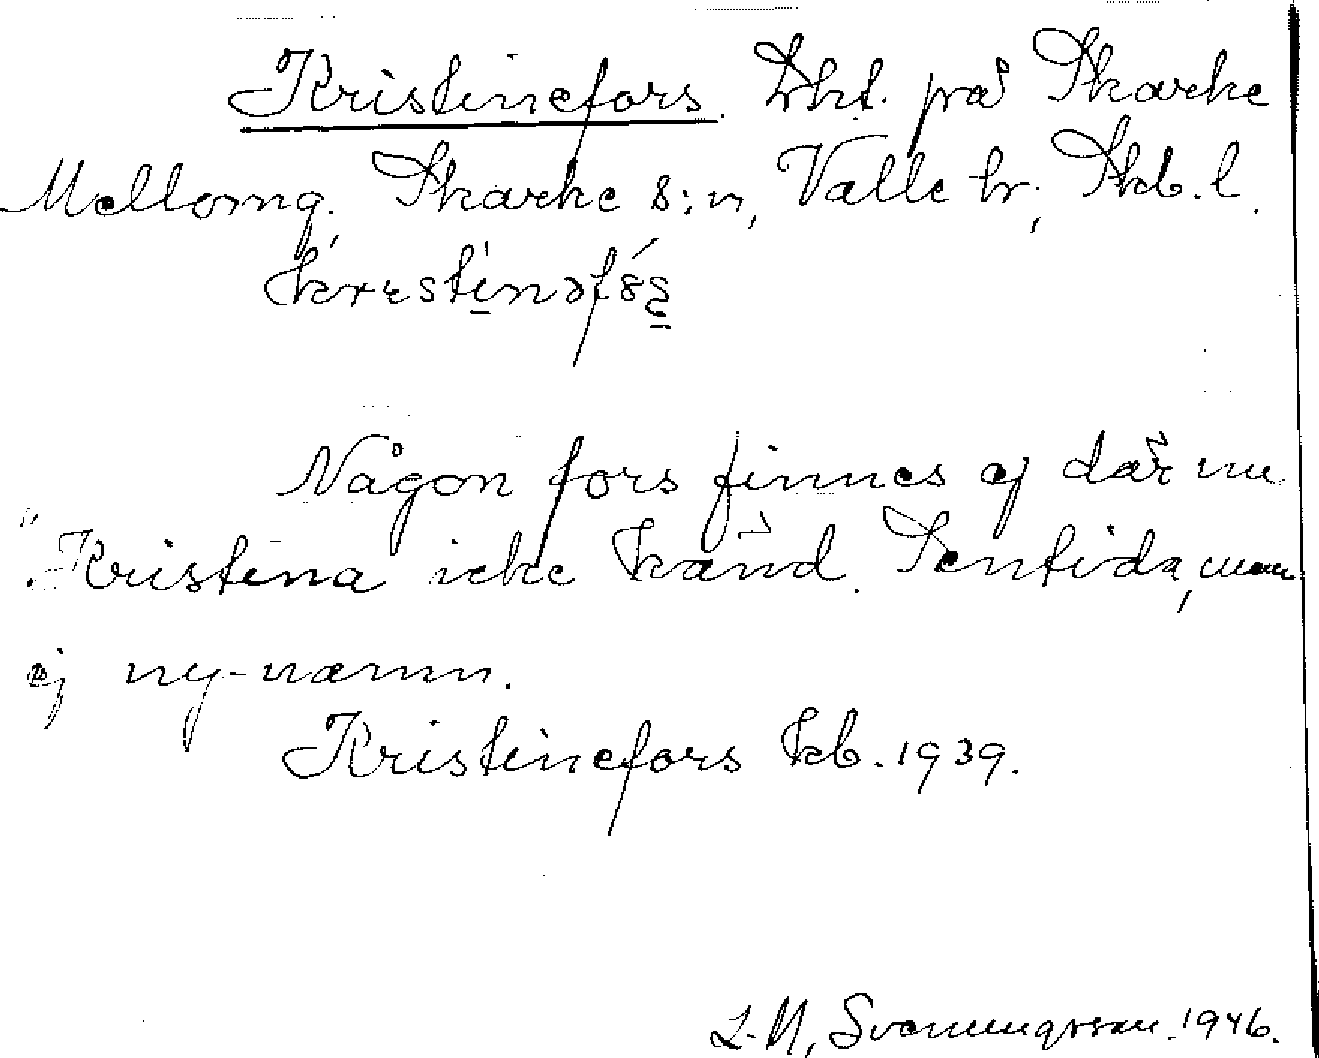 Kristinefors. Lht. på Skarke
Mellomg. Skarke s:n, Valle hr, Skb. l.
Någon fors finnes ej där nu
"Kristina icke känd. Sentida, men
ej ny-namn.
Kristinefors kb. 1939.
L-M, Svenungsson. 1946.